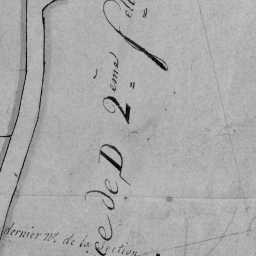 e de P 2ème
dernier N°. de la Section